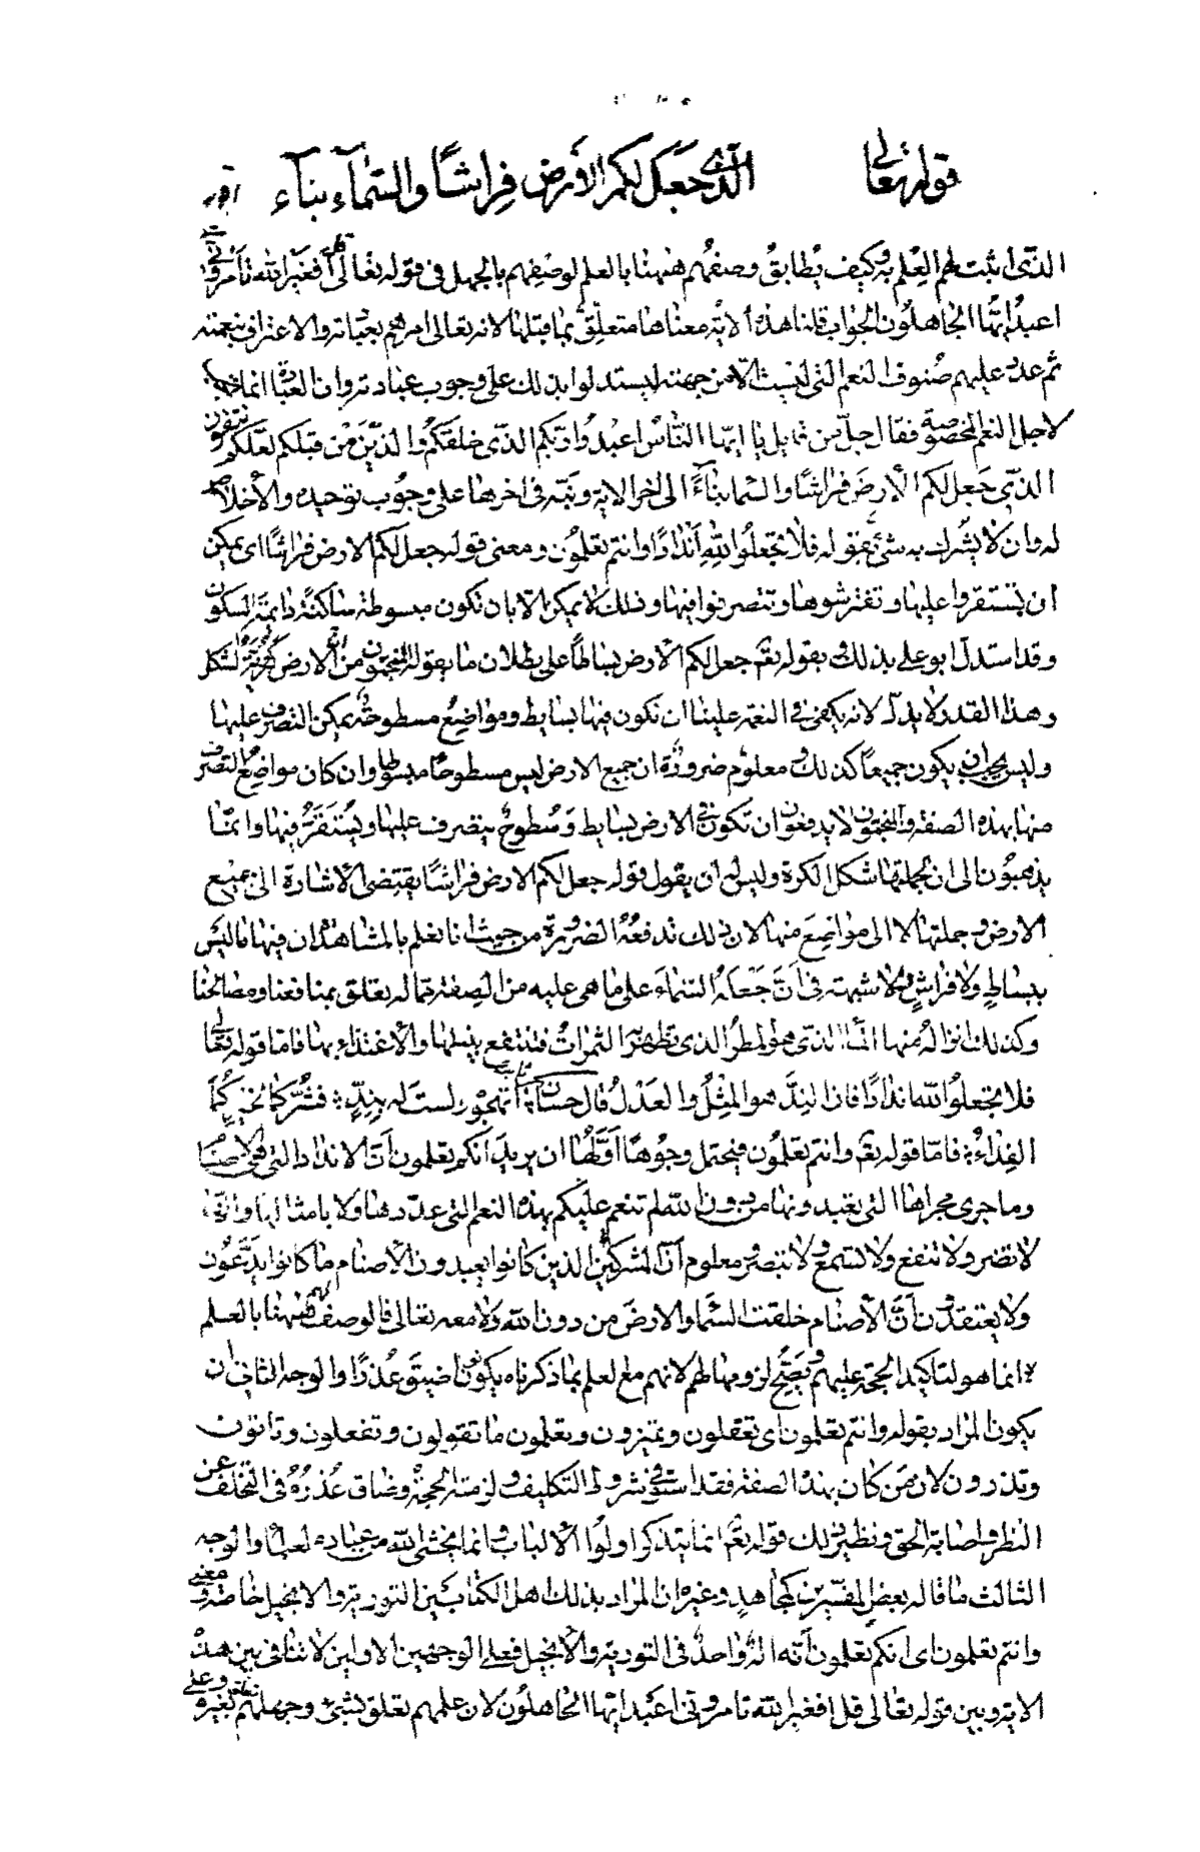 قوله تعالى الذي جعل لكم الأرض فراشا والسماء بناء
الذي اثبت لهم العلم به وكيف يطابق وصفهم هيهنا بالعلم لوصفهم بالجهل في قوله تعالى قل أفغير الله تأمروني
اعبد ايها الجاهلون الجواب قلنا هذه الاية معناها متعلق بما قبلها لانه تعالى امرهم بعبادته والاعتراف بنعمته
ثم عدد عليهم صنوف النعم التي ليست الا من جهته ليستدلوا بذلك على وجوب عبادته وان العبادة انما تجب
لاجل النعم المخصوصة فقال جل من قايل يا ايها الناس اعبدوا ربكم الذي خلقكم والذين من قبلكم لعلكم تتقون
الذي جعل لكم الأرض فراشا والسماء بناء الى اخر الاية ونبه في اخرها على وجوب توحيده والأخلاص
له وان لا يشرك به شيء بقوله فلا تجعلوا لله أندادا وانتم تعلمون ومعنى قوله جعل لكم الارض فراشا اى يمكن
ان تستقروا عليها وتفترشوها وتتصرفوا فيها وذلك لا يمكن الا بان تكون مبسوطة ساكنة دايمة السكون
وقد استدل ابو علي بذلك وبقوله تع جعل لكم الارض بساطا على بطلان ما يقوله المنجمون من أن الارض كروية الشكل
وهذا القدر لا يدل لانه يكفي في النعمة علينا ان تكون فيها بسايط ومواضع مسطوحة يمكن التصرف عليها
وليس يجب ان يكون جميعها كذلك ومعلوم ضرورة ان جميع الارض ليس مسطوحا مبسوطا وان كان مواضع التصرف
منها بهذه الصفة والمنجمون لا يدفعون ان تكون في الارض بسايط وسطوح يتصرف عليها ويستقر فيها وانما
يذهبون الى ان بجملتها شكل الكرة وليس له ان يقول قوله جعل لكم الارض فراشا يقتضى الاشارة الى جميع
الارض وجملتها لا الى مواضع منها لان ذلك تدفعه الضرورة من حيث انا نعلم بالمشاهدة ان فيها ما ليس
ببساط ولا فراش ولا شبهة في أن جعله السماء على ما هي عليه من الصفة مما له تعلق بمنافعنا ومصالحنا
وكذلك انزاله منها الماء الذي هو المطر الذي تظهر به الثمرات فننتفع بنيلها والاغتذاء بها فاما قوله تعالى
فلا تجعلوا لله اندادا فان الند هو المثل والعدل قال حسان بن ثابت أتهجوه ولست له بند فشركما لخيركما
الفداء فاما قوله تع وانتم تعلمون فيحتمل وجوها أولها ان يريد أنكم تعلمون أن الانداد التي هي الاصنام
وما جرى مجراها التي تعبدونها من دون الله لم تنعم عليكم بهذه النعم التي عددها ولا بامثالها وانها
لا تضر ولا تنفع ولا تسمع ولا تبصر ومعلوم أن المشركين الذين كانوا يعبدون الأصنام ما كانوا يدعون
ولا يعتقدون أن الأصنام خلقت السماء والارض من دون الله ولا معه تعالى فالوصف لهم هيهنا بالعلم
انما هو لتاكيد الحجة عليهم ويصح لزومها لهم لانهم مع العلم بما ذكرناه يكونون اضيق عذرا والوجه الثاني ان
يكون المراد بقوله وانتم تعلمون اى تعقلون وتميزون وتعلمون ما تقولون وتفعلون وتاتون
وتذرون لان من كان بهذه الصفة فقد استوفى شروط التكليف ولزمته الحجة وضاق عذره في التخلف عن
النظر واصابة الحق ونظير ذلك قوله تع انما يتذكر اولوا الالباب وانما يخشى الله من عباده العلماء والوجه
الثالث ما قاله بعض المفسرين كمجاهد وغيره ان المراد بذلك اهل الكتابين التورية والانجيل خاصة ومعنى
وانتم تعلمون اى انكم تعلمون أنه اله واحد في التورية والانجيل فعلى الوجهين الاولين لا تنافى بين هذه
الاية وبين قوله تعالى قل افغير الله تامروني اعبد ايها الجاهلون لان علمهم تعلق بشيء وجهلهم تعلق بغيره وعلى